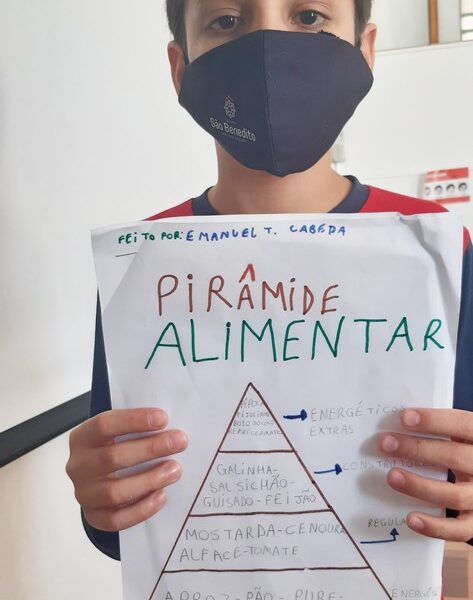 São Benedito
FEITO POR: EMANUEL T. CABEDA
PIRÂMIDE
ALIMENTAR
PIPOCA
BOLO DOCES
REFRIGERANTE
ENERGÉTICOS
EXTRAS
GALINHA-
SALSICHÃO-
GUISADO-FEIJÃO
CONSTRUTORES
MOSTARDA-CENOURA
ALFACE-TOMATE
REGULA
ARROZ-PÃO-PURE-
ENERGÉ